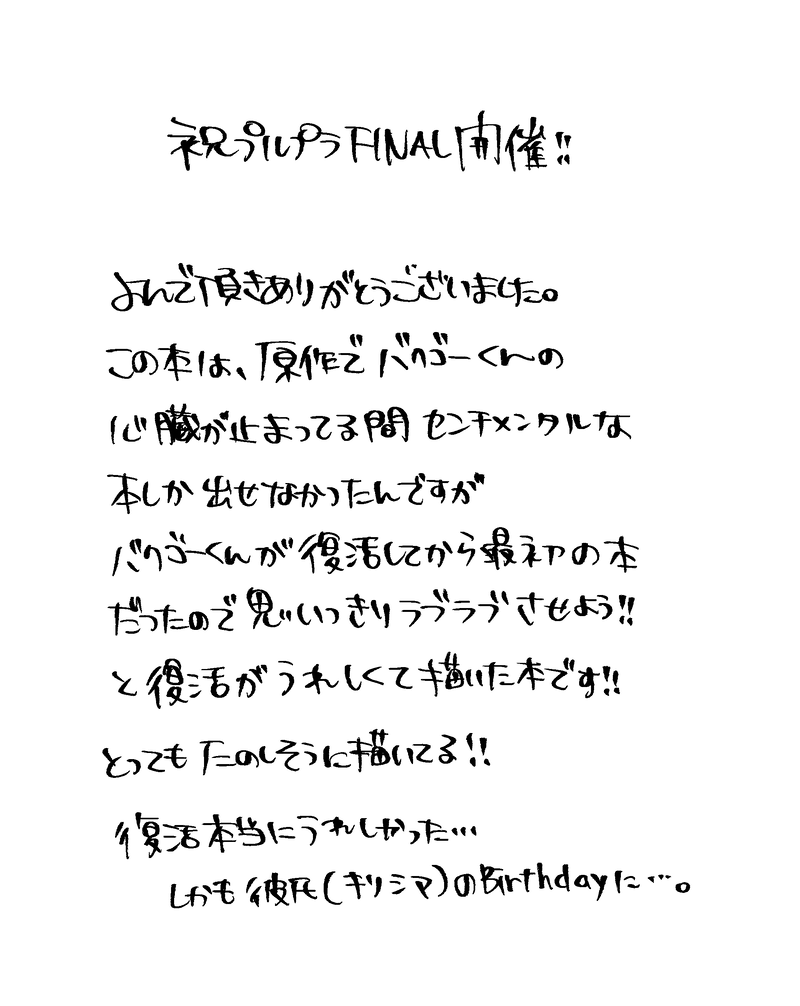 祝プルプラFINAL開催!!
よんで頂きありがとうございました。
この本は、原作でバクゴーくんの
心臓が止まってる間 センチメンタルな
本しか出せなかったんですが
バクゴーくんが復活してから最初の本
だったので思いっきりラブラブさせよう!!
と復活がうれしくて描いた本です!!
とってもたのしそうに描いてる!!
復活本当にうれしかった…
しかも彼氏(キリシマ)のBirthdayに…。